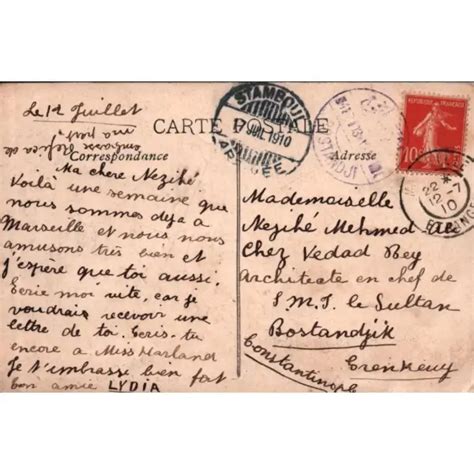 Le 12 Juillet
CARTE POSTALE
Correspondance
Adresse
Ma chère Nezihé
Voilà une semaine que
nous sommes deja a
Marseille et nous nous
amusons très bien et
j'espère que toi aussi.
Ecrie moi vite, car je
voudrais recevoir une
lettre de toi. Ecris-tu
encore a Miss Harland
Je t'imbrasse bien fort
ton amie LYDIA
Mademoiselle
Nezihé Mehmed
Chez Vedad Bey
Architecte en chef de
S.M.I. le Sultan
Bostandjik
Erenkeuy
Constantinople
STAMBOUL
17 JUIL 1910
ARRIVÉE
REPUBLIQUE FRANÇAISE
10
22
12-7
10